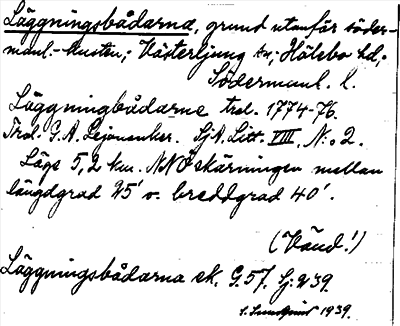 Läggningsbådarna, grund utanför söder-
manl.-kusten; Västerljung sn; Hölebo hd;
Södermanl. l.
Läggningbådarne trol. 1774-76.
Trol. G. A. Lejonanker. Sjk. Litt. VIII, N:o 2.
Läge 5,2 km. NNÖ skärningen mellan
längdgrad 25' o. breddgrad 40'.
(Vänd!)
Läggningsbådarna ek. G.57. Sj: 239.
S. Lundqvist 1939.